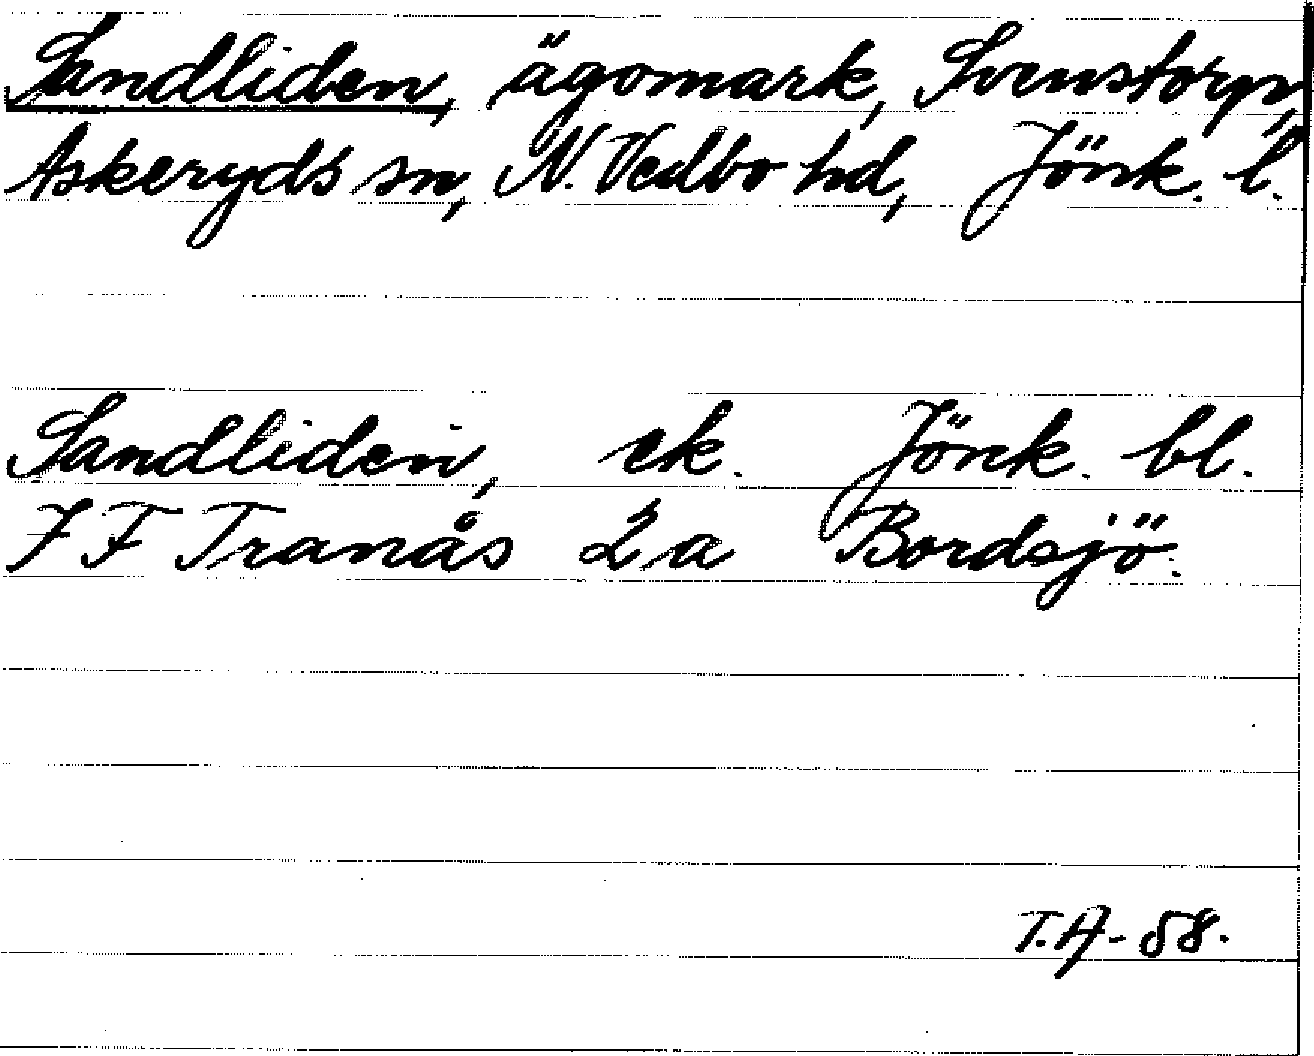 Sandliden, ägomark, Svenstorp,
Askeryds sn, N. Vedbo hd, Jönk. l.
Sandliden, ek. Jönk. bl.
7 F Tranås 2 a Bordsjö.
T.A-58.